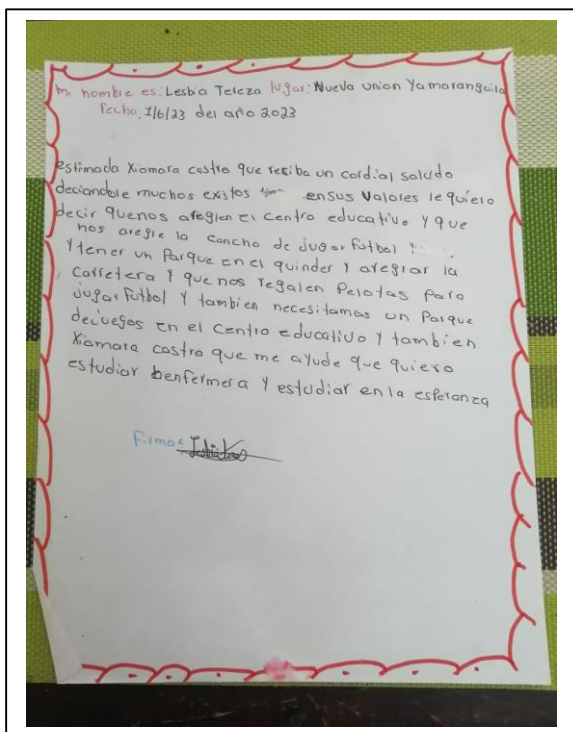 mi nombre es: Lesbia Teleza lugar: Nueva union Yamaranguila
Fecho: 1/6/23 del año 2023
estimada Xiomara castro que resiba un cordial saludo
deciandole muchos existos ensus Valores le quiero
decir quenos areglen el centro educativo y que
nos aregle la concha de jugar futbol
Y tener un Parque en el quinder Y areglar la
carretera Y que nos regalen Pelotas Para
Jugar futbol Y tambien necesitamos un Parque
dejuegos en el centro educativo Y tambien
Xiamara castro que me ayude que quiero
estudiar benfermera Y estudiar en la esperanza
Firma: